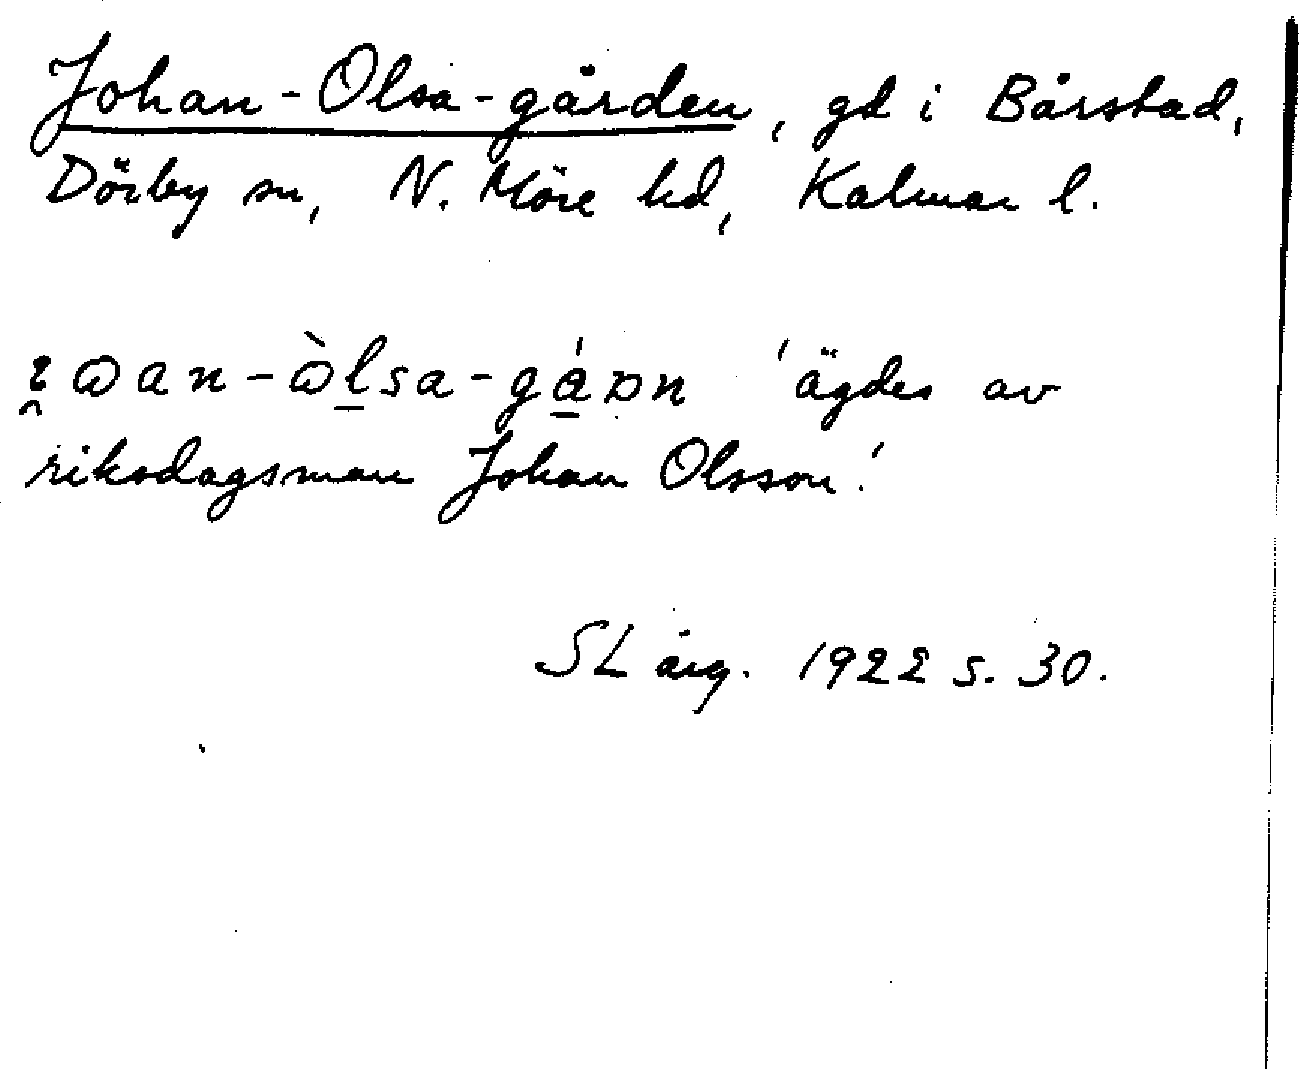 Johan-Olsa-gården, gd i Bårstad,
Dörby sn, N. Möre hd, Kalmar l.
'ägdes av
riksdagsman Johan Olsson.'
SL årg. 1922 s. 30.